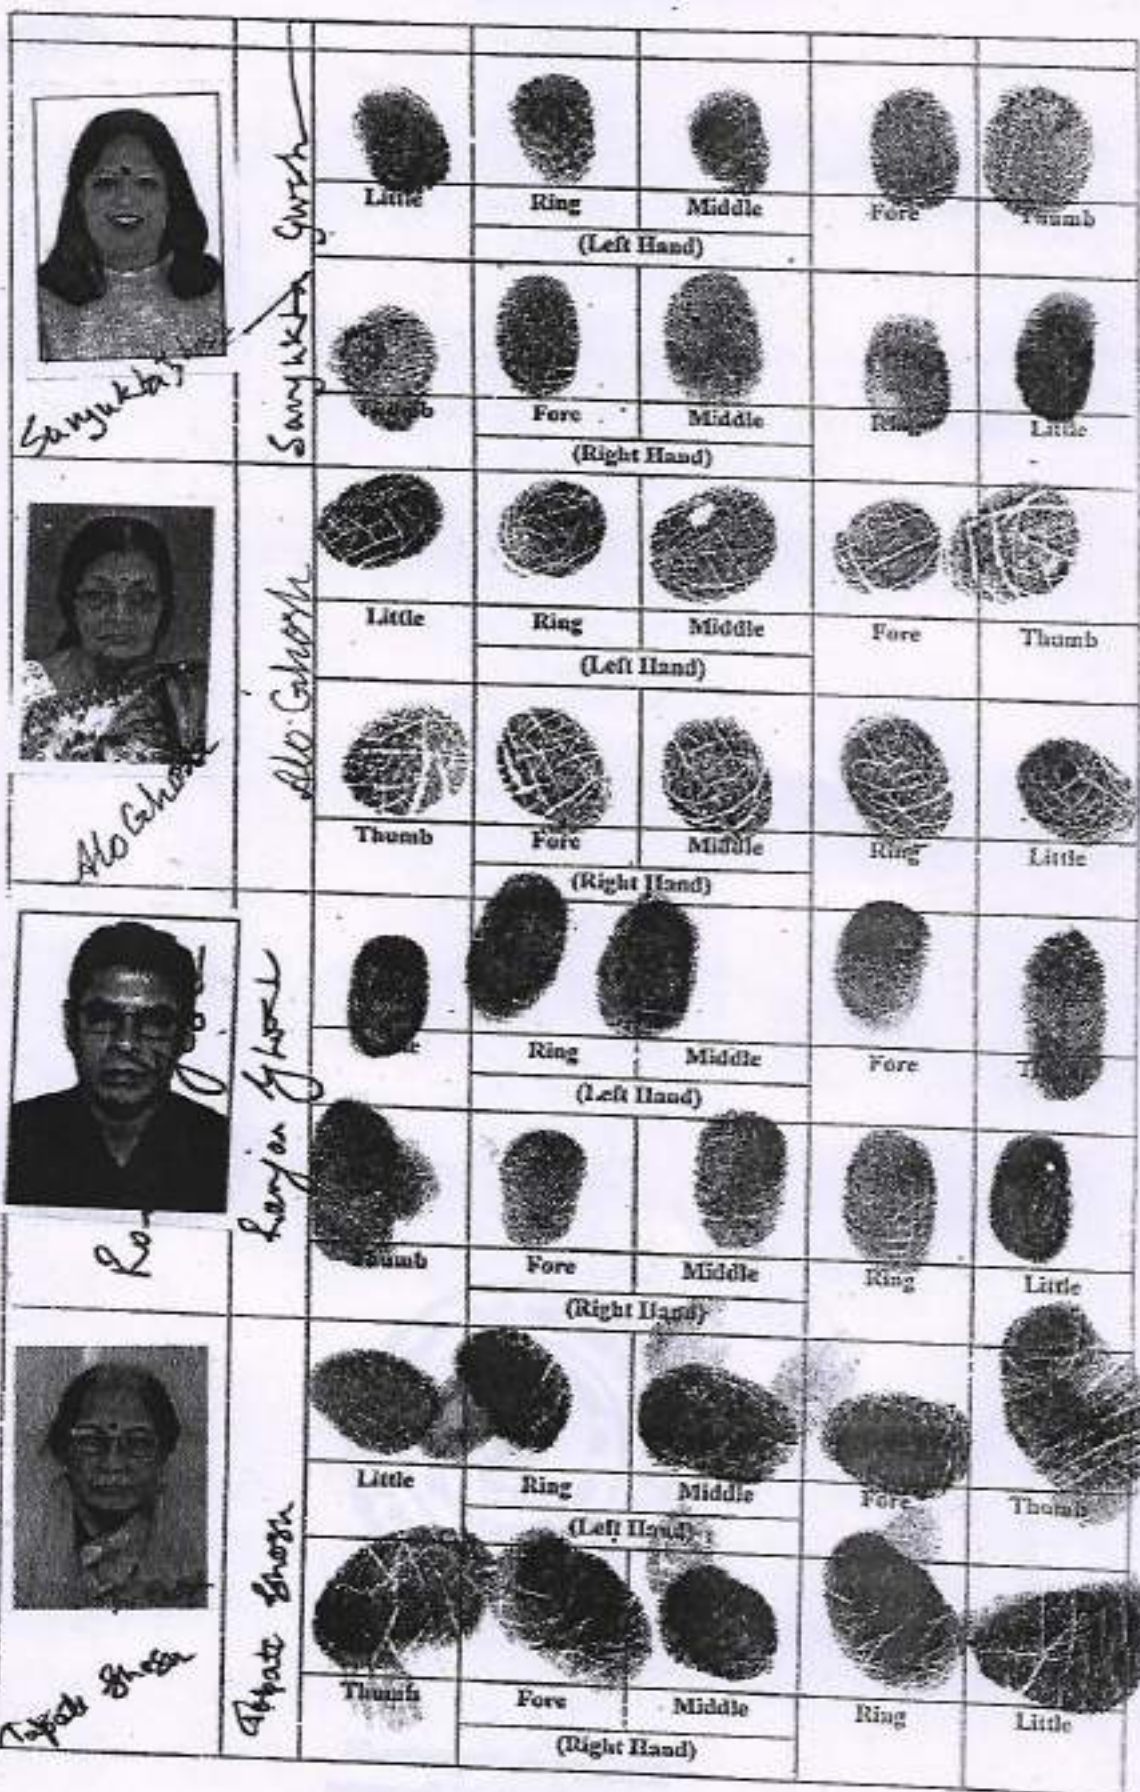 Sanyukta Ghosh
Little Ring Middle Fore Thumb
(Left Hand)
Thumb Fore Middle Ring Little
(Right Hand)
Sanyukta
Alo Ghosh
Little Ring Middle Fore Thumb
(Left Hand)
Thumb Fore Middle Ring Little
(Right Hand)
Alo Ghosh
Ranjan Ghosh
Ring Middle Fore
(Left Hand)
Thumb Fore Middle Ring Little
(Right Hand)
Tapati Ghosh
Little Ring Middle Fore Thumb
(Left Hand)
Thumb Fore Middle Ring Little
(Right Hand)
Tapati Ghosh